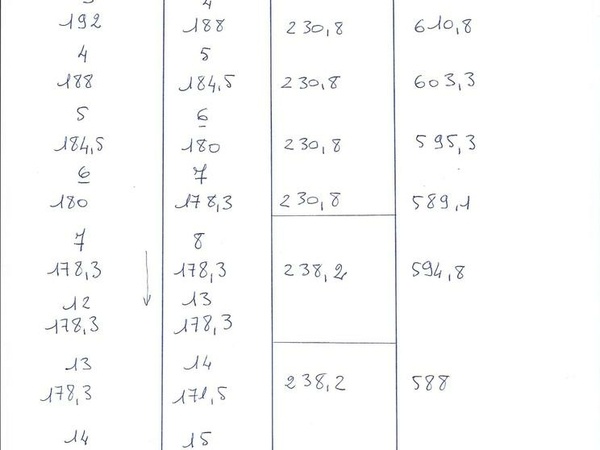 4
192 188 230,8 610,8
4 5
188 184,5 230,8 603,3
5 6
184,5 180 230,8 595,3
6 7
180 178,3 230,8 589,1
7 8
178,3 178,3 238,2 594,8
12 13
178,3 178,3
13 14
178,3 171,5 238,2 588
14 15